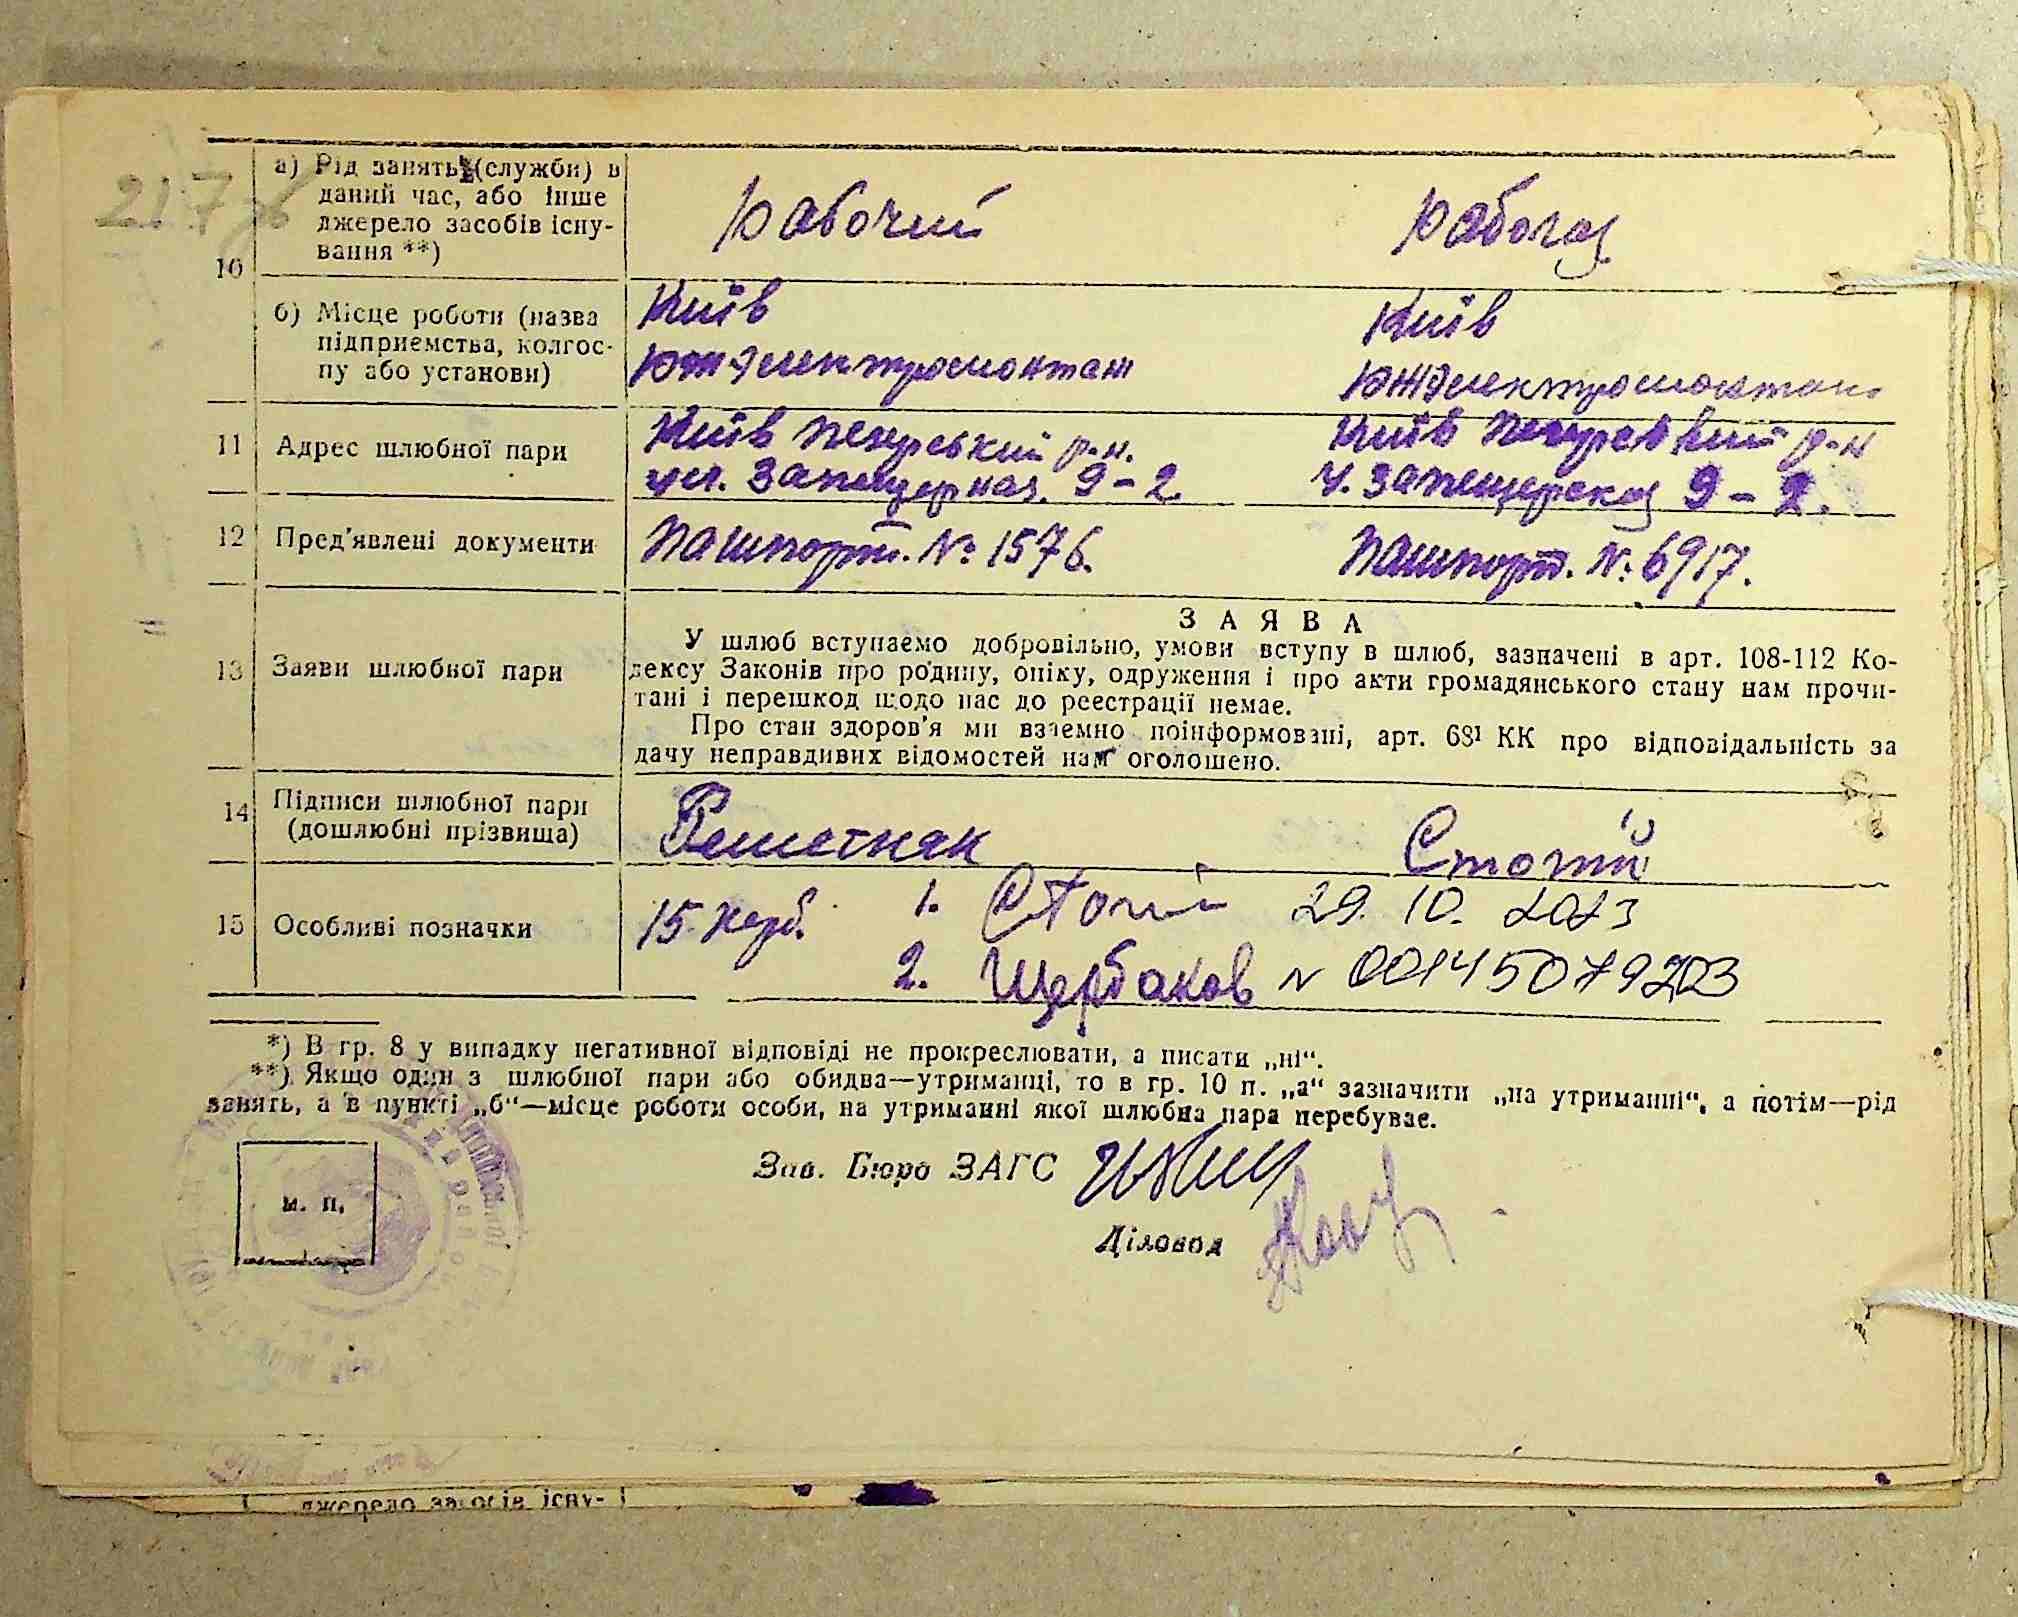 10
а) Рід занять (служби) в
даний час, або інше
джерело засобів існу-
вання **)
Рабочий
Рабочая
б) Місце роботи (назва
підприємства, колгос-
пу або установи)
Київ
Київ
Южэлектромонтаж
Южэлектромонтаж
11 Адрес шлюбної пари
Київ Печерський р-н.
ул. Запещерная. 9-2.
Київ Печерский р-н
у. Запещерская 9-2.
12 Пред'явлені документи
Пашпорт. № 1576.
Пашпорт. № 6917.
13 Заяви шлюбної пари
ЗАЯВА
У шлюб вступаємо добровільно, умови вступу в шлюб, зазначені в арт. 108-112 Ко-
дексу Законів про родину, опіку, одруження і про акти громадянського стану нам прочи-
тані і перешкод щодо нас до реєстрації немає.
Про стан здоров'я ми взаємно поінформовані, арт. 68¹ КК про відповідальність за
дачу неправдивих відомостей нам оголошено.
14 Підписи шлюбної пари
(дошлюбні прізвища)
Решетняк
Стогній
15 Особливі позначки
15 карб.
1. 29. 10. 2023
2. Щербаков N 00145079203
*) В гр. 8 у випадку негативної відповіді не прокреслювати, а писати „ні“.
**) Якщо один з шлюбної пари або обидва—утриманці, то в гр. 10 п. „а“ зазначити „на утриманні“, а потім—рід
занять, а в пункті „б“—місце роботи особи, на утриманні якої шлюбна пара перебуває.
м. п.
Зав. Бюро ЗАГС
Діловод
джерело засобів існу-